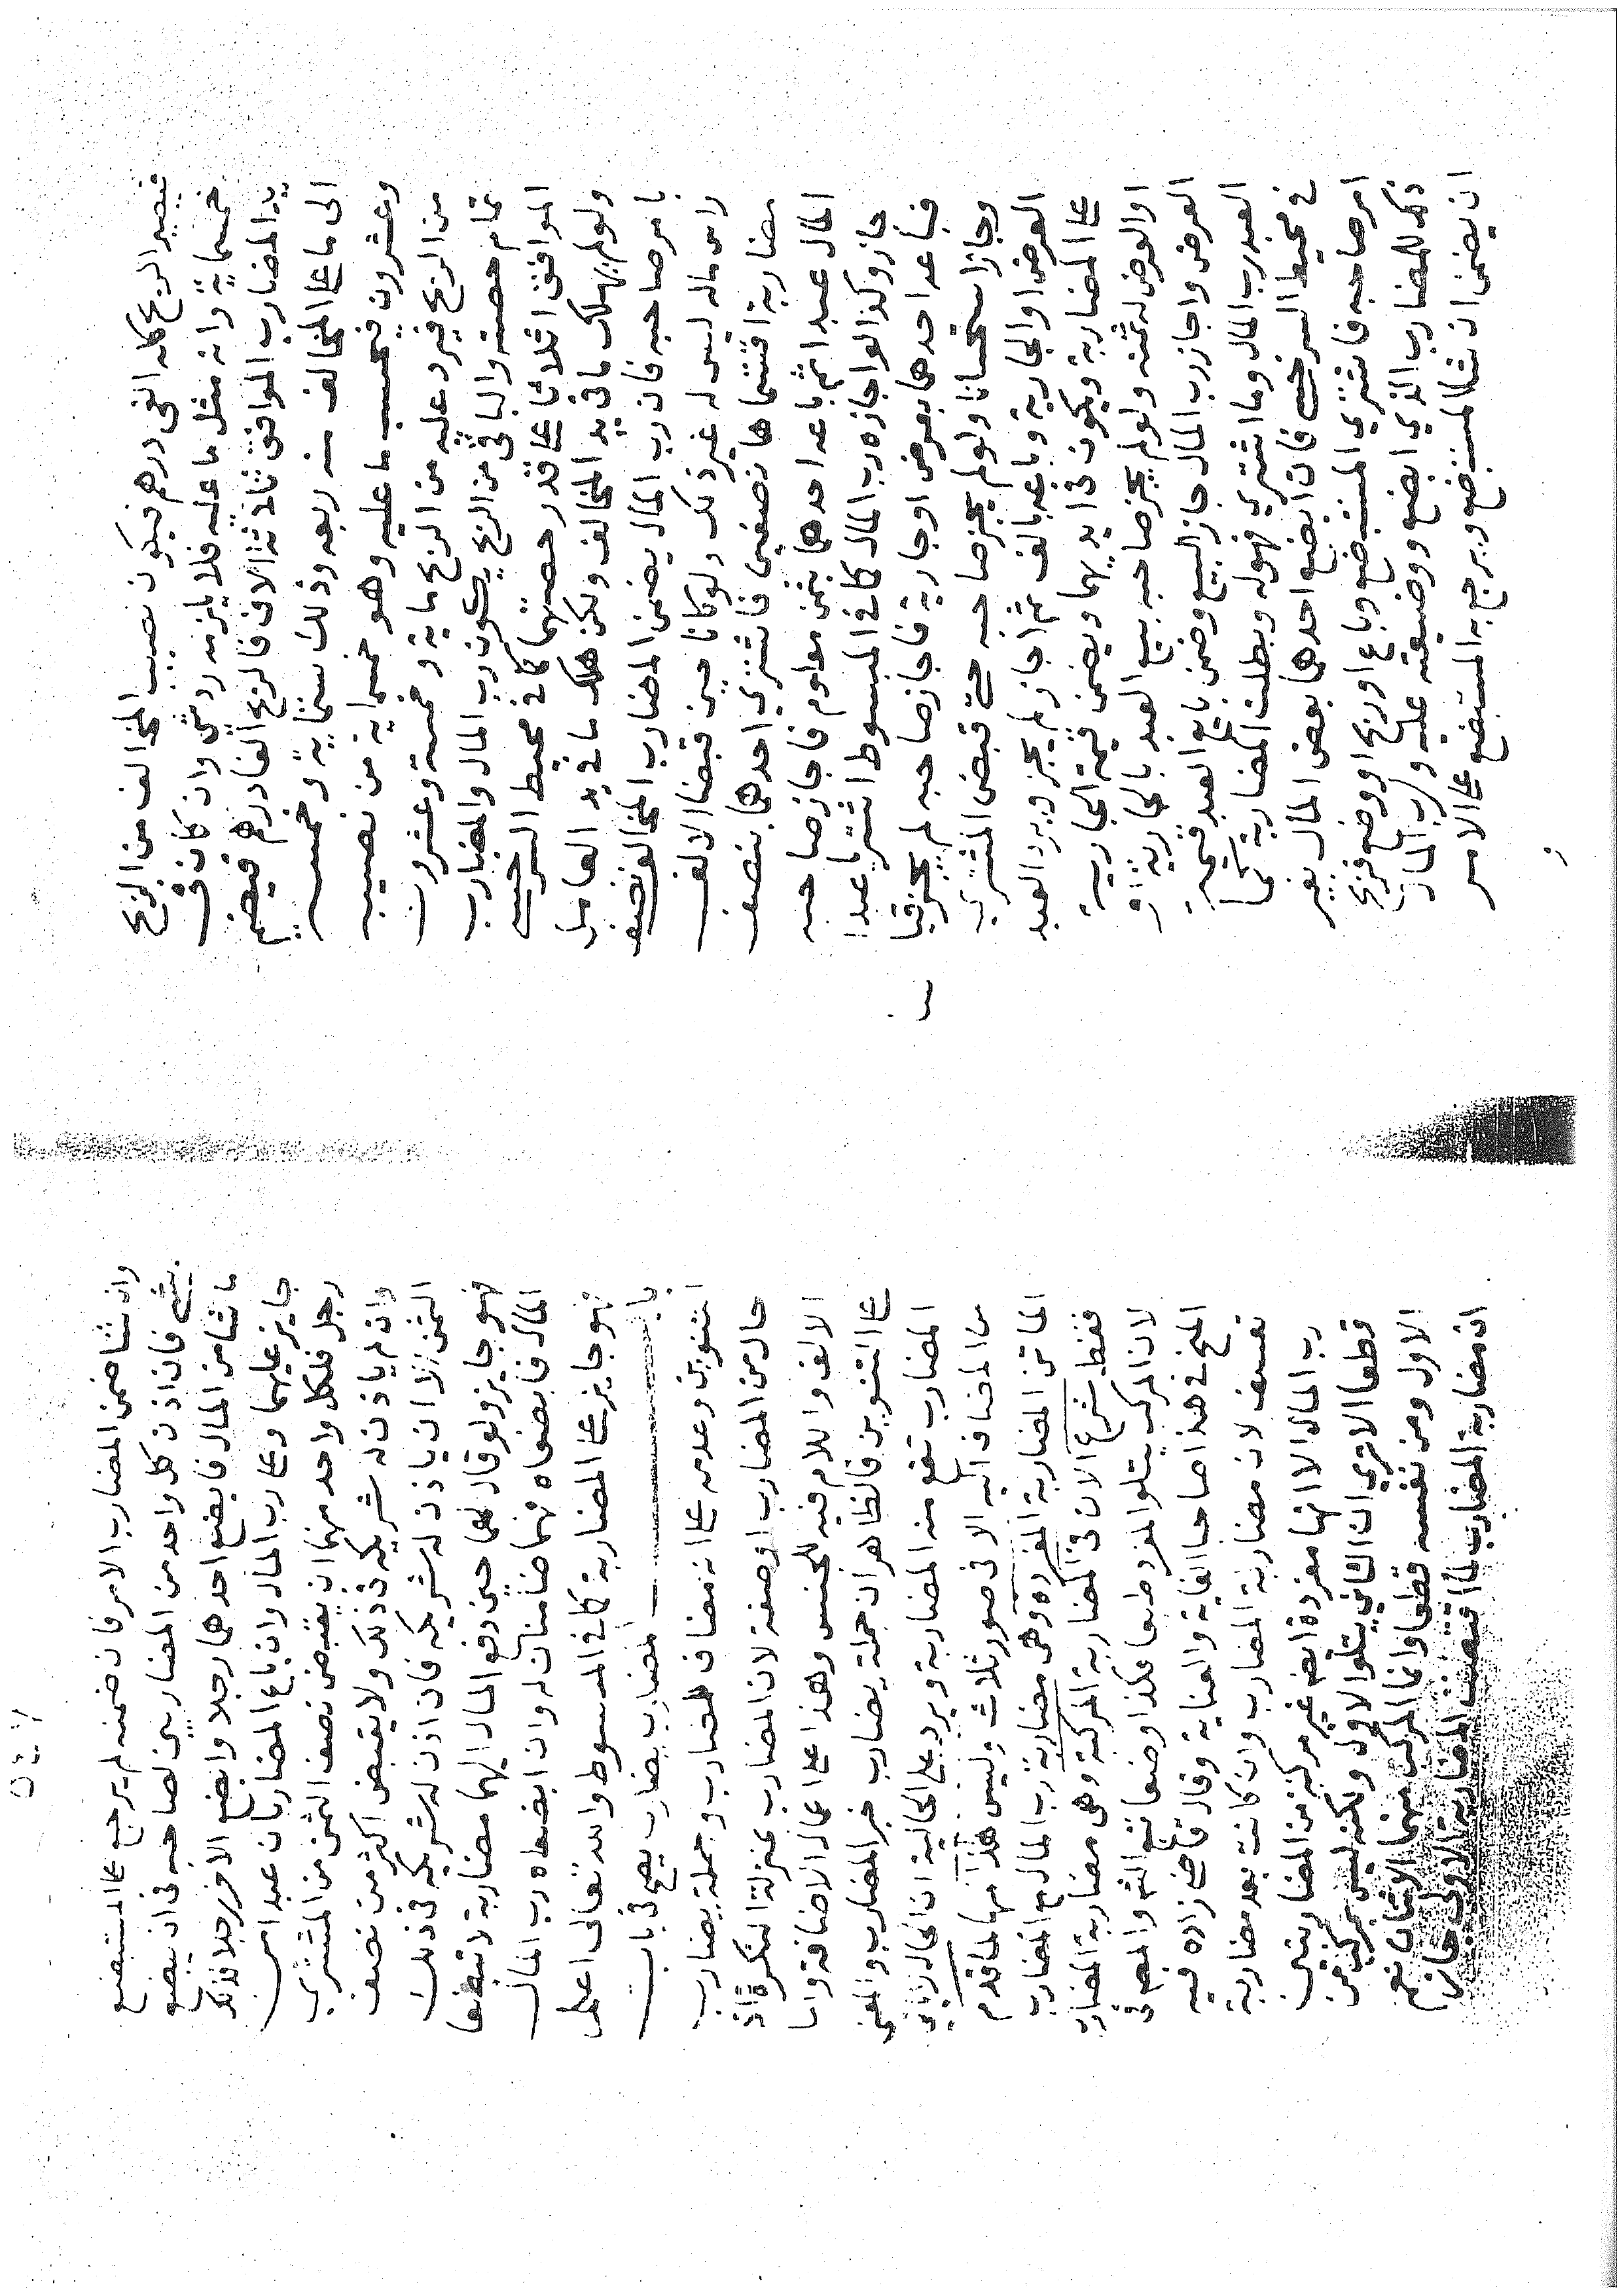 فيصير الربح كله الفى درهم فيكون نصيب المخالف من الربح
خمسماية وانه مثل ما عليه فلا يلزمه رد شى وان كان فى
يد المضارب الموافق ثلاثة الاف فالربح الفا درهم فيضم
الى ما على المخالف منه ربعه وذلك ستماية وخمسـة
وعشرون فيحسب ما عليه وهو خمسماية من نصيبه
من الربح فيرد عليه من الربح ماية وخمسة وعشرون
تمام حصته والباقى من الربح يكون رب المال والمضارب
الموافق اثلاثا على قدر حصتهما كما فى محيط السرخسى
ولو لم يهلك ما فى يد المخالف ولكن هلك ما فى يد العامل
بامر صاحبه فان رب المال يضمن المضارب المخالف نصف
راس ماله ليس له غير ذلك ولو كانا حين قبضا الالف
مضاربة اقتسماها نصفين فاشترى احدهما بنصف
المال عبدا ثم باعه احدهما بثمن معلوم فاجاز صاحبه
جاز وكذا لو اجازه رب المال كما فى المبسوط اشتريا عبدا
فباعه احدهما بعرض او جارية فاجاز صاحبه لم يجز قيا
وجاز استحسانا ولو لم يجز صاحبه حتى قبض المشترى
العرض او الجارية وباعه بالف ثم اجاز لم يجز ويرد العبد
على المضاربة ويكون فى ايديهما ويضمن قيمة الجارية
او العرض له ثمنه ولو لم يجز صاحبه بيع العبد بالجارية او
العرض واجاز رب المال جاز البيع وضمن بايع العبد قيمة
العبد رب المال وما اشترى فهو له وبطلت المضاربة كما
فى محيط السرخسى فان ابضع احدهما بعض المال بغير
امر صاحبه فاشترى المستبضع وباع او ربح او وضع فربح
ذلك للمضارب الذي ابضع ووضيعته عليه ورب المال
ان يضمن ان شا المستبضع ويرجع به المستبضع على الامر
وان شا ضمن المضارب الامر فان ضمنه لم يرجع على المستبضع
بشى فان اذن كل واحد من المضاربين لصاحبه فى ان يبضع
ما شا من المال فابضع احدهما رجلا وابضع الاخر رجلا فذلك
جايز عليهما وعلى رب المال وان باع المضاربان عبدا من
رجل فلكل واحد منهما ان يقبض نصف الثمن من المشترى
وان لم ياذن له شريكه فى ذلك ولا يقبض اكثر من نصف
الثمن الا ان ياذن له شريكه فان اذن له شريكه فى ذلك
فهو جايز ولو قال لهما حين دفع المال اليهما مضاربة لا تبضعا
المال فابضعاه فهما ضامنان له وان ابضعاه رب المال
فهو جايز على المضاربة كما فى المبسوط والله تعالى اعلم
باب المضارب يضارب يصح فى باب
التنوين وعدمه على انه مضاف للمضارب وجملة يضارب
حال من المضارب او صفة لان المضارب بمنزلة النكرة اذ
الالف واللام فيه للجنس وهذا على اعمال الاضافة واما
على التنوين فالظاهر ان جملة يضارب خبر المضارب والمعنى
المضارب تقع منه المضاربة ويرد على الحالية ان الحال لا ياتى
من المضاف اليه الا فى صور ثلاث وليس هذا منها لما قدم
الماتن المضاربة المفرده وهى مضاربة رب المال مع المضارب
فقط شرع الان فى المضاربة المركبة وهى مضاربة المضارب
لان المركب يتلوا المفرد طبعا فكذا وضعا تبع الشم والمصنف
المنح فى هذا صاحبا الغاية والعناية وقال قاضى زاده فيه
تعسف لان مضاربة المضارب وان كانت بعد مضاربة
رب المال الا انها مفردة ايضا غير مركبة من المضاربتين
قطعا الا ترى ان الثانى يتلوا الاول ولكنه ليس بمركب من
الاول ومن نفسه قطعا وانما المركب منهما الاثنان نعم
ان مضاربة المضارب لما اقتضت المضاربة الاولى جاز